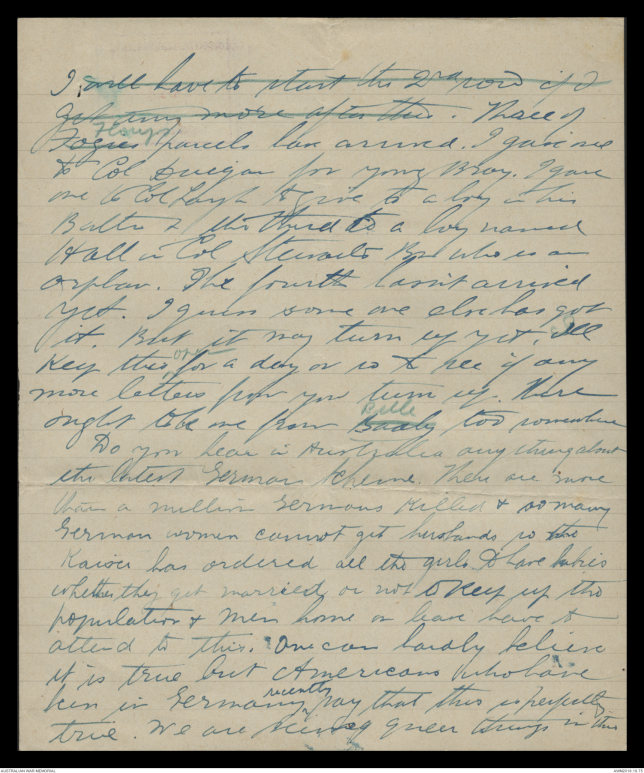 I will have to start the 2nd word if I
get any more after this. Three of
Flongs
Fogies parcels have arrived. I gave one
to Col Duigan for young Bray. I gave
one to Col Leigh to give to a boy in his
Battn & the third to a boy named
Hall in Col Stewarts Bn who is an
orphan. The fourth hasn't arrived
yet. I guess some one else has got
it. But it may turn up yet. Ill
Keep this open for a day or so to see if any
more letters from you turn up. There
Belle
ought to be one from too somewhere
Do you hear in Australia anything about
the latest German scheme. There are more
than a million Germans killed & so many
German women cannot get husbands so the
Kaiser has ordered all the girls to have babies
whether they get married or not to keep up the
population & men home on leave have to
attend to this. One can hardly believe
it is true but Americans who have
been in Germany recently say that this is perfectly
true. We are seeing queer things in this
AUSTRALIAN WAR MEMORIAL